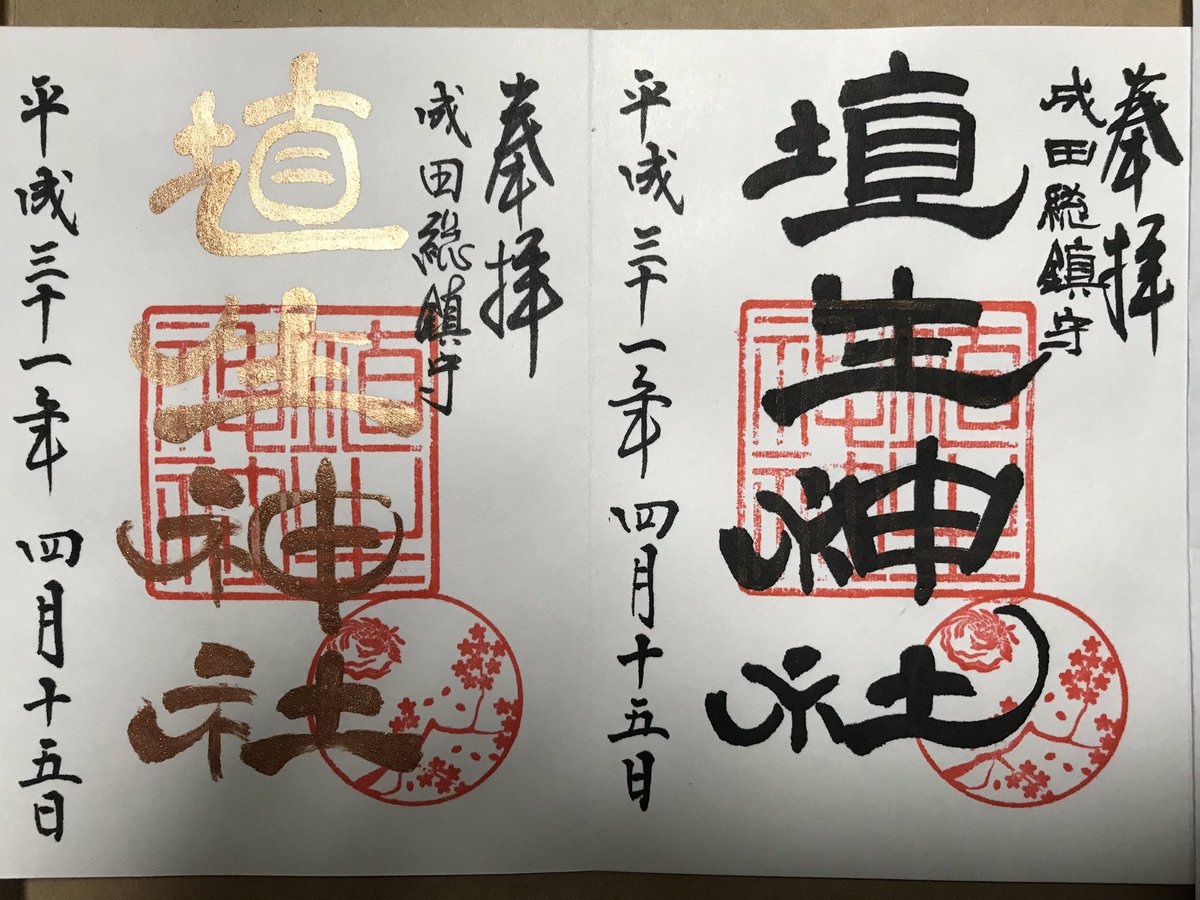 奉拝
成田総鎮守
埴生神社
平成三十一年 四月十五日
奉拝
成田総鎮守
埴生神社
平成三十一年 四月十五日